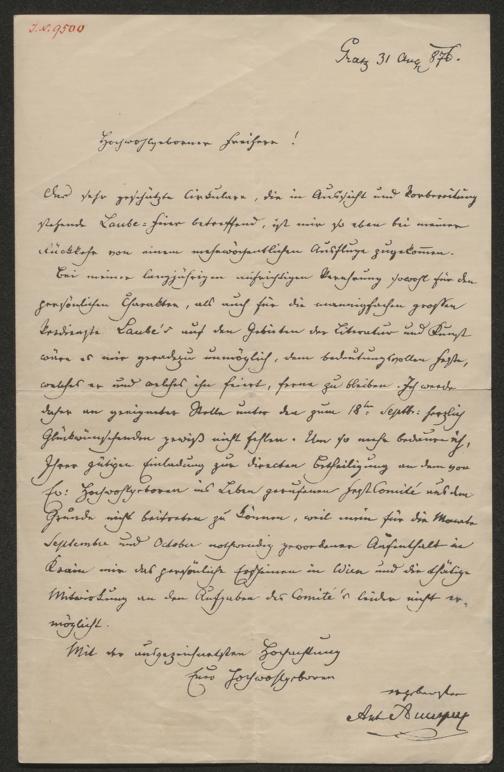 I.N. 9500
Gratz 31 Aug 876.
Hochwohlgeborner Freiherr!
Das sehr geschätzte Circulare, die in Aussicht und Vorbereitung
stehende Laube=Feier betreffend, ist mir so eben bei meiner
Rückkehr von einem mehrwöchentlichen Ausfluge zugekommen.
Bei meiner langjährigen aufrichtigen Verehrung sowohl für den
persönlichen Charakter, als auch für die mannigfachen großen
Verdienste Laube's auf den Gebieten der Literatur und Kunst
wäre es mir geradezu unmöglich, dem bedeutungsvollen Feste,
welches er und welches ihn feiert, ferne zu bleiben. Ich werde
daher an geeigneter Stelle unter den zum 18ten Septb: herzlich
Glückwünschenden gewiß nicht fehlen. Um so mehr bedaure ich,
Ihrer gütigen Einladung zur directen Betheiligung an dem von
Ew: Hochwohlgeboren ins Leben gerufenen Festcomité aus dem
Grunde nicht beitreten zu können, weil mein für die Monate
September und October nothwendig gewordener Aufenthalt in
Krain mir das persönliche Erscheinen in Wien und die thätige
Mitwirkung an den Aufgaben des Comité's leider nicht er-
möglicht.
Mit der ausgezeichnetsten Hochachtung
Euer Hochwohlgeboren
ergebenster
Ant Auersperg